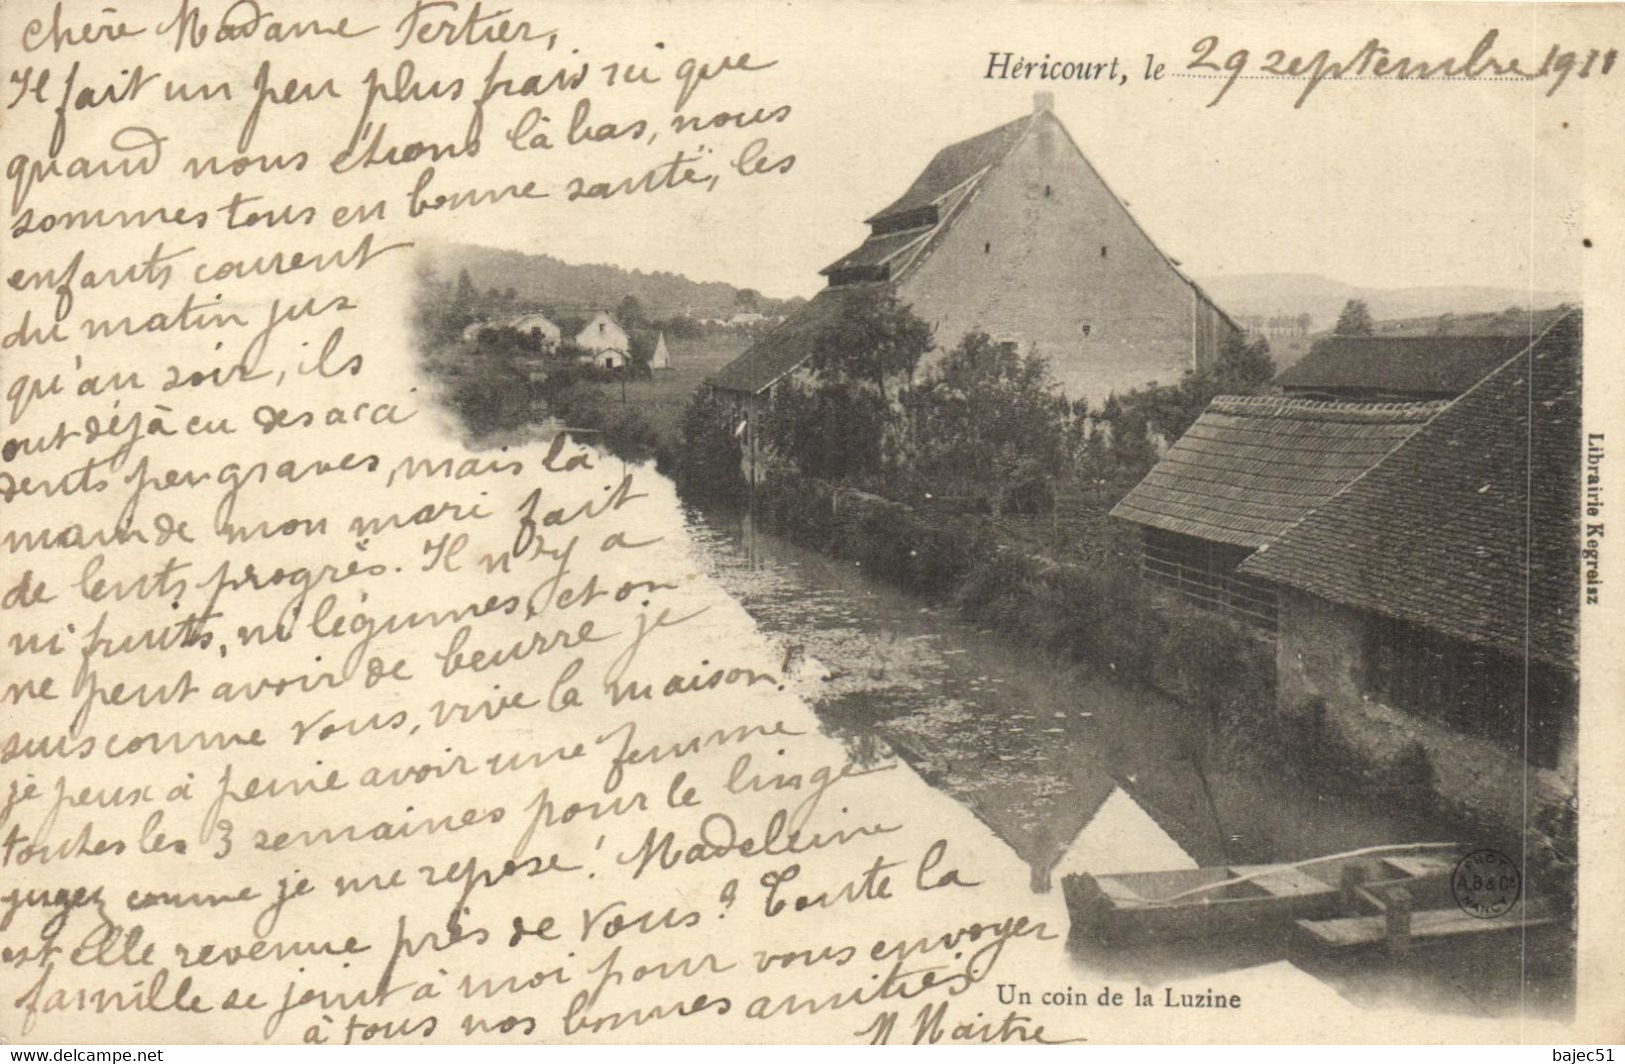 Chère Madame Tertier,
Il fait un peu plus frais ici que
quand nous étions là bas, nous
sommes tous en bonne santé, les
enfants courent
du matin jus
qu'au soir, ils
ont déjà eu des acci
dents peu graves, mais la
main de mon mari fait
de lents progrès. Il n'y a
ni fruits, ni légumes, et on
ne peut avoir de beurre je
suis comme vous, vive la maison!
je peux à peine avoir une femme
toutes les 3 semaines pour le linge
jugez comme je me repose! Madeleine
est elle revenue près de vous? Toute la
famille se joint à moi pour vous envoyer
à tous nos bonnes amitiés.
M Maitre
Héricourt, le 29 septembre 1911
Librairie Kegreisz
PHOT
A.B & Cie
NANCY
Un coin de la Luzine
https://www.delcampe.net
bajec51